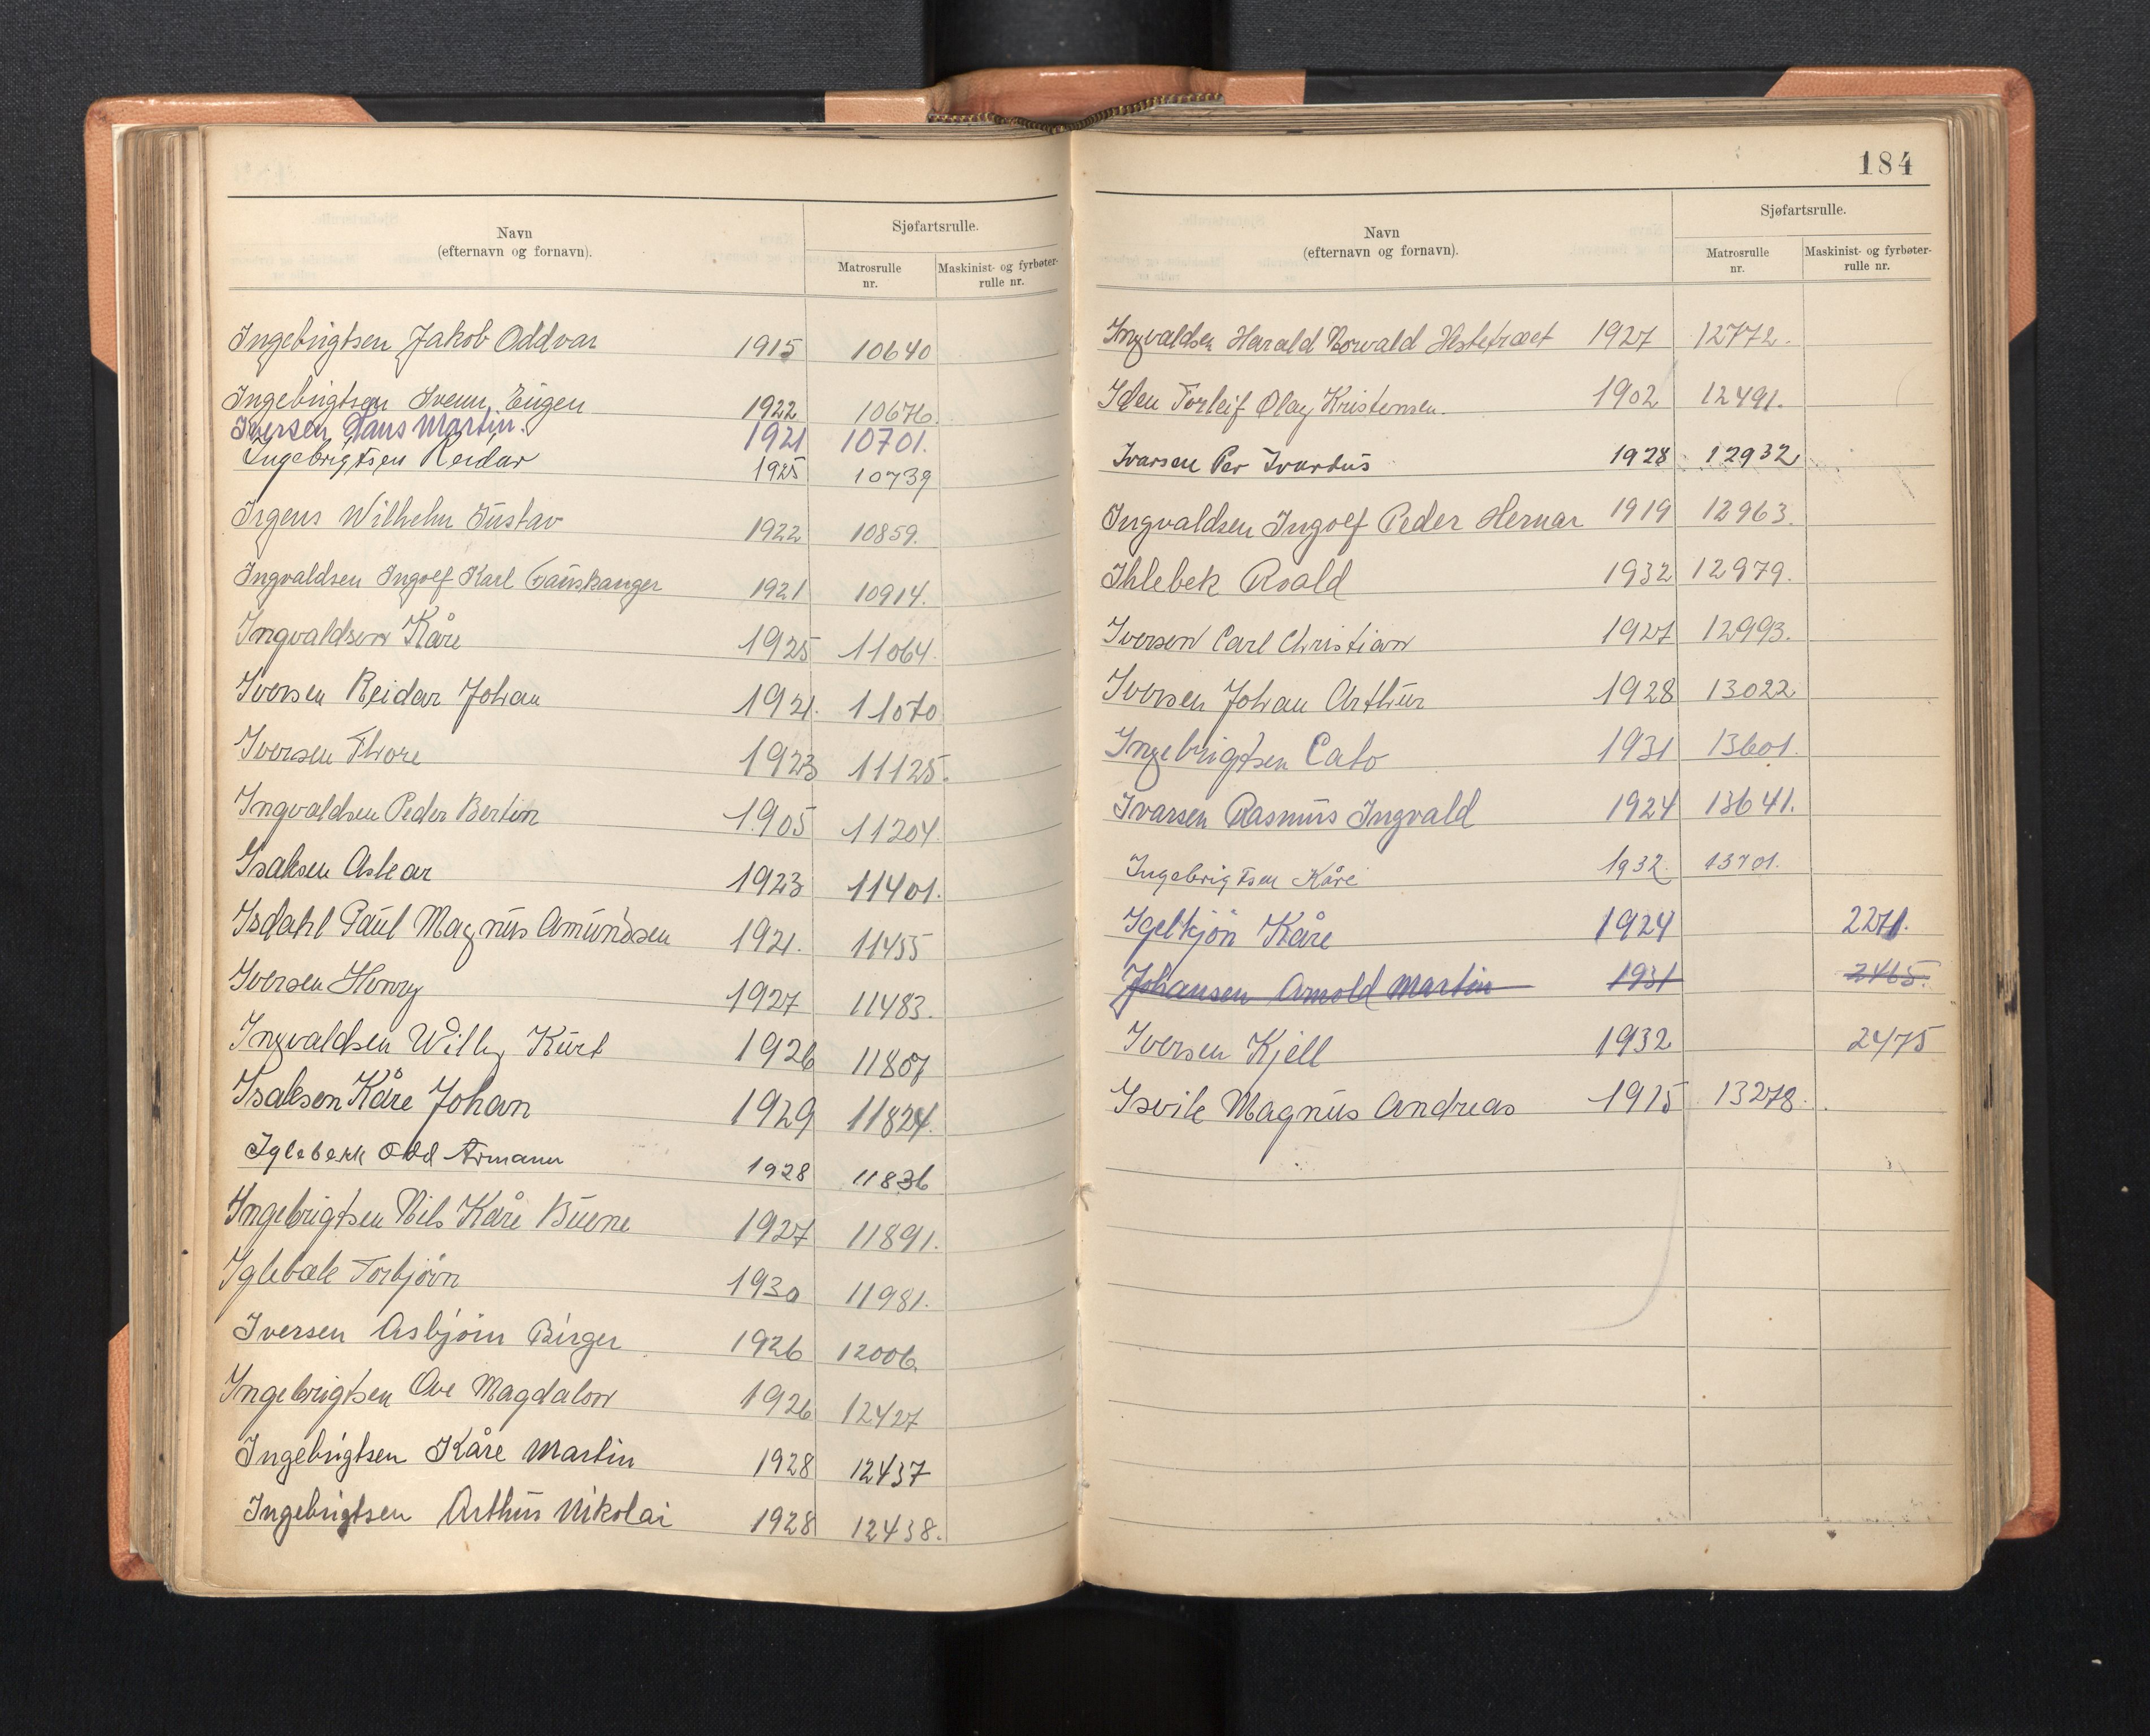 Navn
(efternavn og fornavn).
Sjøfartsrulle.
Matrosrulle
nr.
Maskinist- og fyrbøter-
rulle nr.
Ingebrigtsen Jakob Oddvar 1915 10640
Ingebrigtsen Svenn Eugen 1922 10676.
Iversen, Hans Martin. 1921 10701.
Ingebrigtsen Reidar 1925 10739
Irgens Wilhelm Gustav 1922 10859.
Ingvaldsen Ingolf Karl 1921 10914.
Ingvaldsen Kåre 1925 11064.
Iversen Reidar Johan 1921. 11070
Iversen Thore 1923 11125.
Ingvaldsen Peder Bertin 1905 11204.
Isaksen Askear 1923 11401.
Isdahl Paul Magnus Amundsen 1921. 11455
Iversen Henry 1927 11483.
Ingvaldsen Willy Kurt 1926 11807
Isaksen Kåre Johan 1929 11824.
Iglebekk Odd Armann 1928 11836
Ingebrigtsen Nils Kåre Buene 1927 11891.
Iglebæk Torbjörn 1930 11981.
Iversen Asbjörn Birger 1926 12006.
Ingebrigtsen Ove Magdalon 1926 12427
Ingebrigtsen Kåre Martin 1928 12437
Ingebrigtsen Arthur Nikolai 1928 12438.
184
Navn
(efternavn og fornavn).
Sjøfartsrulle.
Matrosrulle
nr.
Maskinist- og fyrbøter-
rulle nr.
Ingvaldsen Harald Norvald Hestetræet 1927 12772.
Iden Torleif Olay Kristensen. 1902 12491.
Ivarsen Per Ivartus 1928 12932
Ingvaldsen Ingolf Peder Hernar 1919 12963.
Ihlebek Roald 1932 12979.
Iversen Carl Christian 1927 12993.
Iversen Johan Arthur 1928 13022
Ingebrigtsen Cato 1931 13601.
Ivarsen Rasmus Ingvald 1924 13641.
Ingebrigtsen Kåre 1932. 13701.
Igelkjön Kåre 1924 2271.
Johansen Arnold Martin 1931 2465.
Iversen Kjell 1932 2475
Isvik Magnus Andreas 1915 13278.